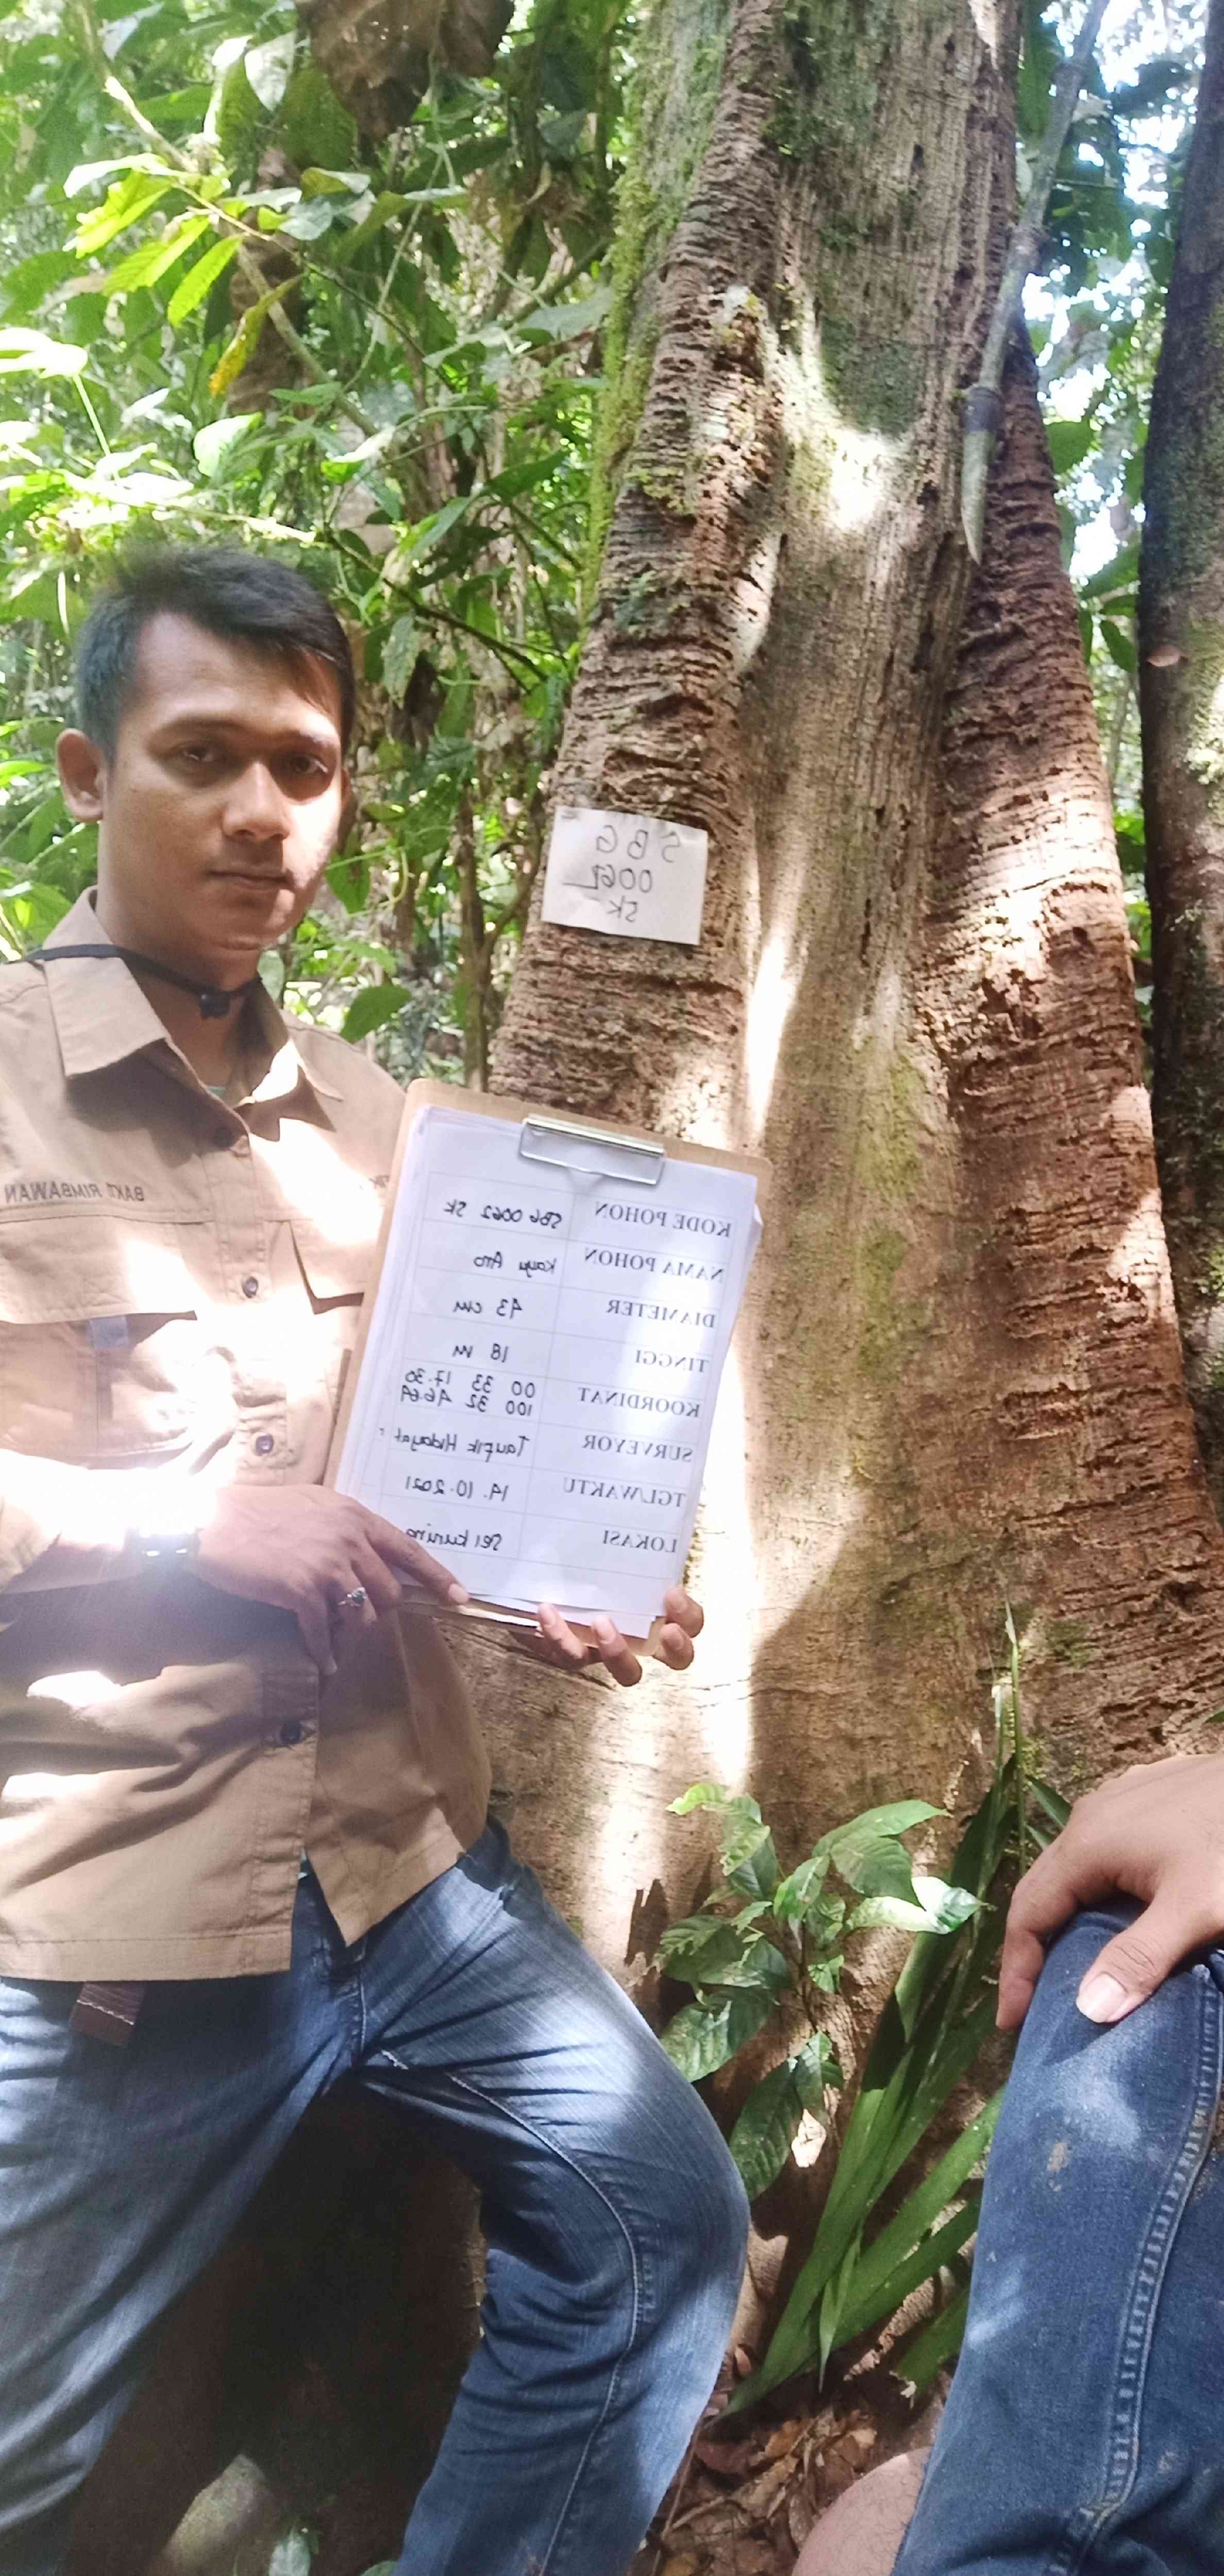 SBG
0062
SK
BAKTI RIMBAWAN
KODE POHON SBG 0062 SK
NAMA POHON Kayu Aro
DIAMETER 43 cm
TINGGI 18 m
KOORDINAT 00 33 17.30
100 32 46.69
SURVEYOR Taufik Hidayat
TGL/WAKTU 14.10.2021
LOKASI